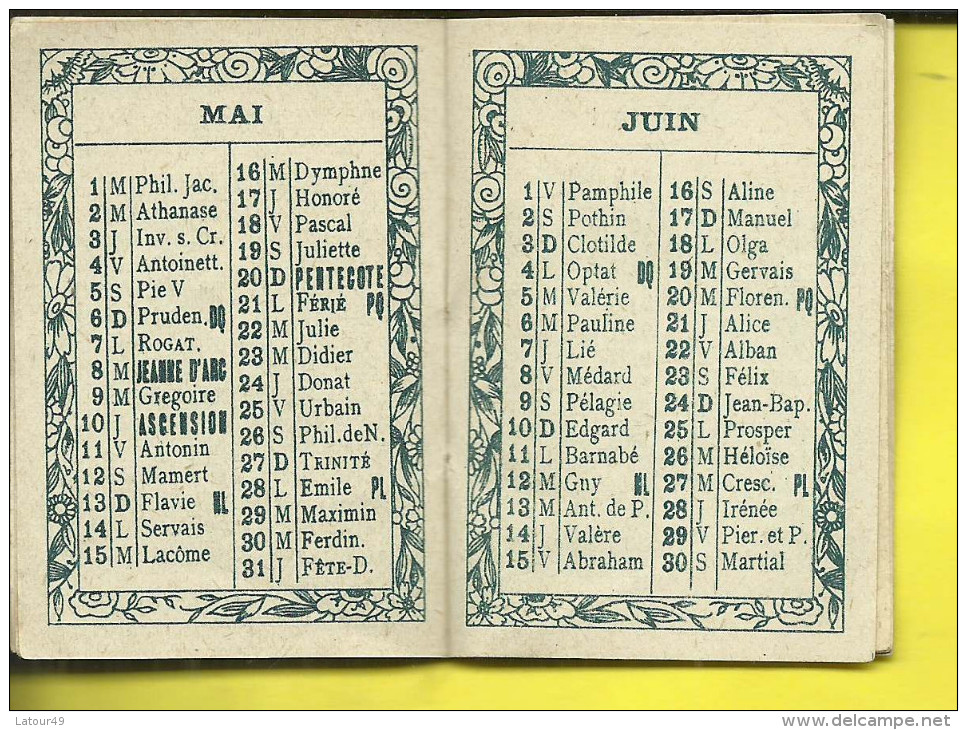 MAI
1 M Phil. Jac.
2 M Athanase
3 J Inv. s. Cr.
4 V Antoinett.
5 S Pie V
6 D Pruden. DQ
7 L ROGAT.
8 M JEANNE D'ARC
9 M Gregoire
10 J ASCENSION
11 V Antonin
12 S Mamert
13 D Flavie NL
14 L Servais
15 M Lacôme
16 M Dymphne
17 J Honoré
18 V Pascal
19 S Juliette
20 D PENTECOTE
21 L FÉRIÉ PQ
22 M Julie
23 M Didier
24 J Donat
25 V Urbain
26 S Phil.deN.
27 D TRINITÉ
28 L Emile PL
29 M Maximin
30 M Ferdin.
31 J FÊTE-D.
JUIN
1 V Pamphile
2 S Pothin
3 D Clotilde
4 L Optat DQ
5 M Valérie
6 M Pauline
7 J Lié
8 V Médard
9 S Pélagie
10 D Edgard
11 L Barnabé
12 M Guy NL
13 M Ant. de P.
14 J Valère
15 V Abraham
16 S Aline
17 D Manuel
18 L Olga
19 M Gervais
20 M Floren. PQ
21 J Alice
22 V Alban
23 S Félix
24 D Jean-Bap.
25 L Prosper
26 M Héloïse
27 M Cresc. PL
28 J Irénée
29 V Pier. et P.
30 S Martial
Latour49
delcampe.net